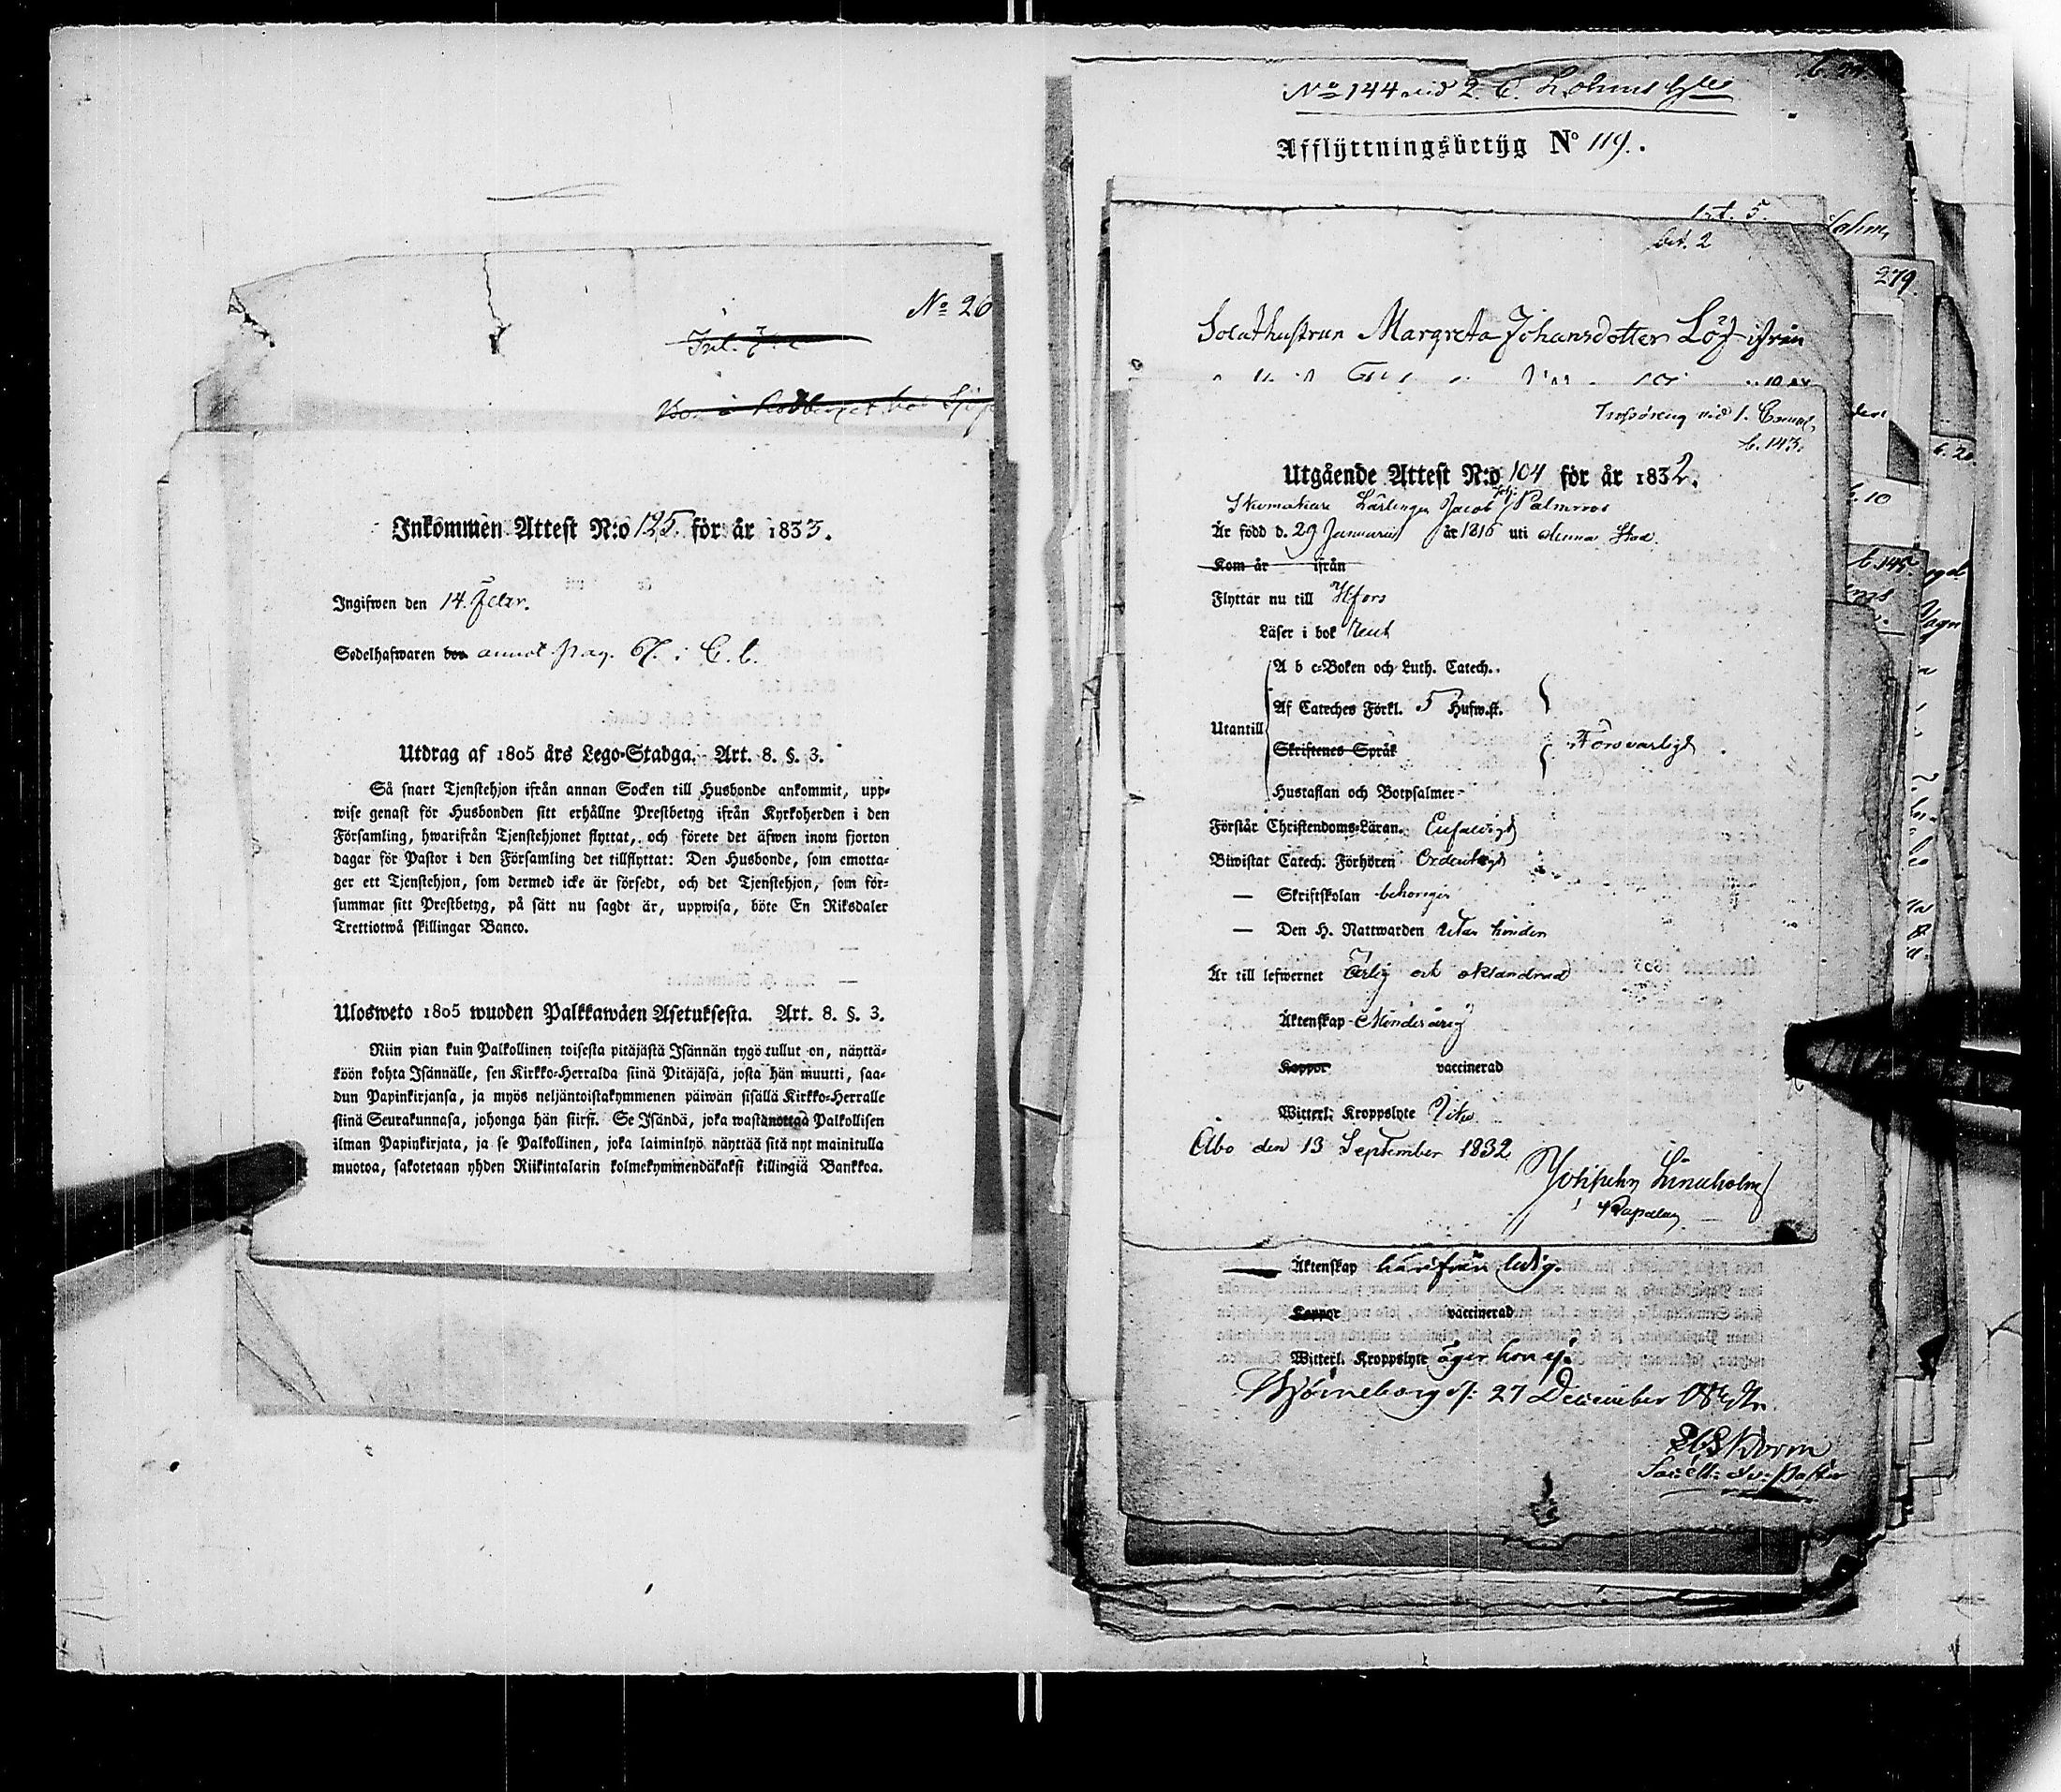 No 20
Inkommen Attest N:o 125. för år 1833.
Ingifwen den 14. Febr.
Sedelhafwaren bor annot. pag. 67. i C. b.
Utdrag af 1805 års Lego-Stadga. Art. 8. §. 3.
Så snart Tjenstehjon ifrån annan Socken till Husbonde ankommit, upp-
wise genast för Husbonden sitt erhållne Prestbetyg ifrån Kyrkoherden i den
Församling, hwarifrån Tjenstehjonet flyttat, och förete det äfwen inom fjorton
dagar för Pastor i den Församling det tillflyttat: Den Husbonde, som emotta-
ger ett Tjenstehjon, som dermed icke är försedt, och det Tjenstehjon, som för-
summar sitt Prestbetyg, på sätt nu sagdt är, uppwisa, böte En Riksdaler
Trettiotwå skillingar Banco.
Ulosweto 1805 wuoden Palkkawäen Asetuksesta. Art. 8. §. 3.
Niin pian kuin Palkollinen toisesta pitäjästä Isännän tygö tullut on, näyttä-
köön kohta Isännälle, sen Kirkko-Herralda siinä Pitäjäsä, josta hän muutti, saa-
dun Papinkirjansa, ja myös neljäntoistakymmenen päiwän sisällä Kirkko-Herralle
siinä Seurakunnasa, johonga hän siirsi. Se Isändä, joka wastanottaa Palkollisen
ilman Papinkirjata, ja se Palkollinen, joka laiminlyö näyttää sitä nyt mainitulla
muotoa, sakotetaan yhden Riikintalarin kolmekymmendäkaksi killingiä Bankkoa.
No 144 vid 2. C.
Afflyttningsbetyg No 119.
bet. 2
Soldathustrun Margreta Johansdotter Löf ifrån
vid 1.
b. 143.
Utgående Attest N:o 104 för år 1832.
Skomakare Lärlingen Jacob Joh: Palmroos
Är född d. 29 Januarii år 1816 uti denna Stad.
Kom år ifrån
Flyttar nu till Hfors
Läser i bok rent
A b c-Boken och Luth. Catech.
Af Cateches Förkl. 5 Hufw.st.
Utantill
Skriftenes Språk
Försvarligt
Hustaflan och Botpsalmer
Förstår Christendoms-Läran. Enfaldigt
Biwistat Catech. Förhören Ordentligt
— Skriftskolan behörigen
— Den H. Nattwarden utan hinder
Är till lefwernet Ärlig och oklandrad
Äktenskap Minderårig
Koppor vaccinerad
Witterl. Kroppslyte Utan
Åbo den 13 September 1832
Äktenskap härifrån ledig.
Koppor vaccinerad
Witterl. Kroppslyte äger hon ej.
Björneborg d: 27 December
279.
b. 20
b. 10
b. 145